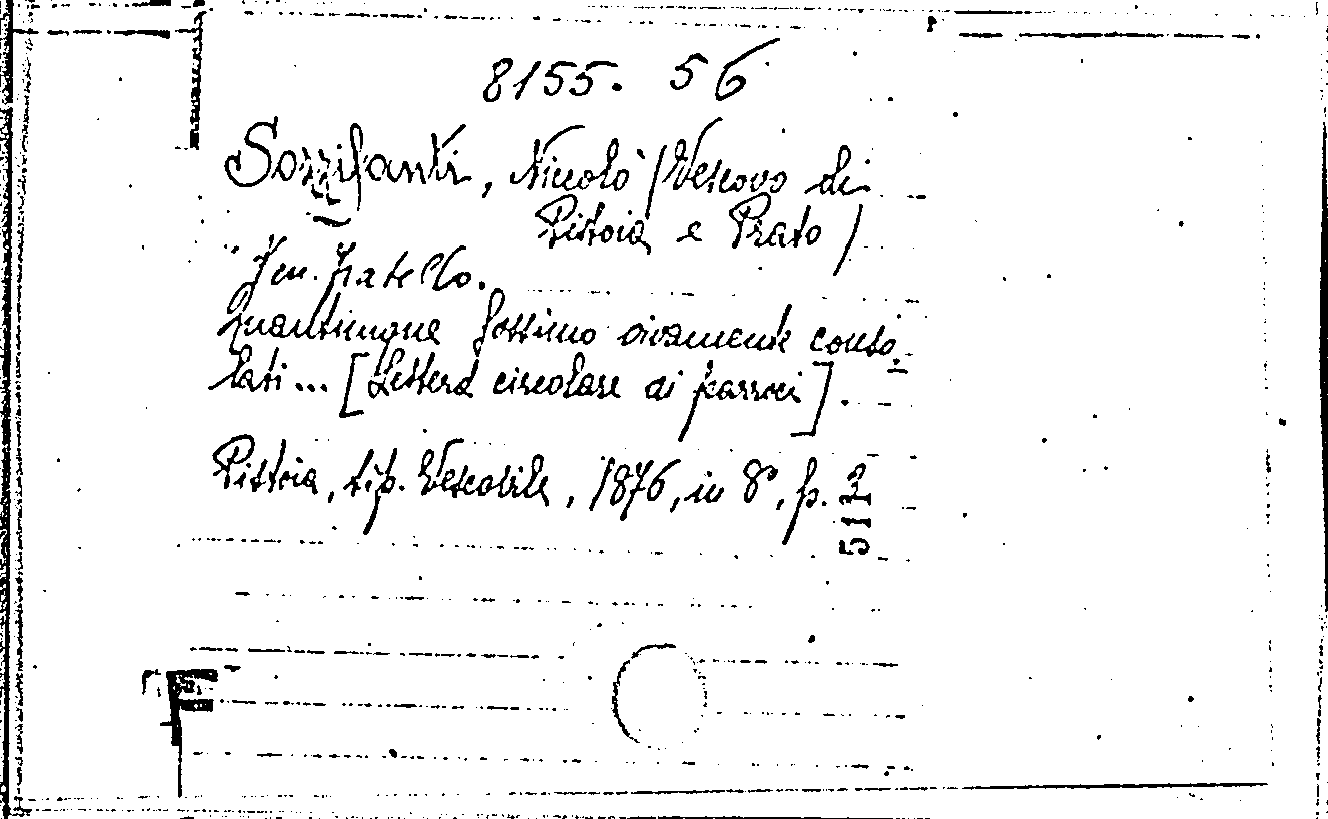 8155. 56
Sozzifanti, Niccolò / Vescovo di
Pistoia e Prato /
" Ven. fratello.
Quantunque fossimo vivamente conso-
lati... [Lettera circolare ai parroci].
Pistoia, tip. Vescovile, 1876, in 8°, p. 3
511